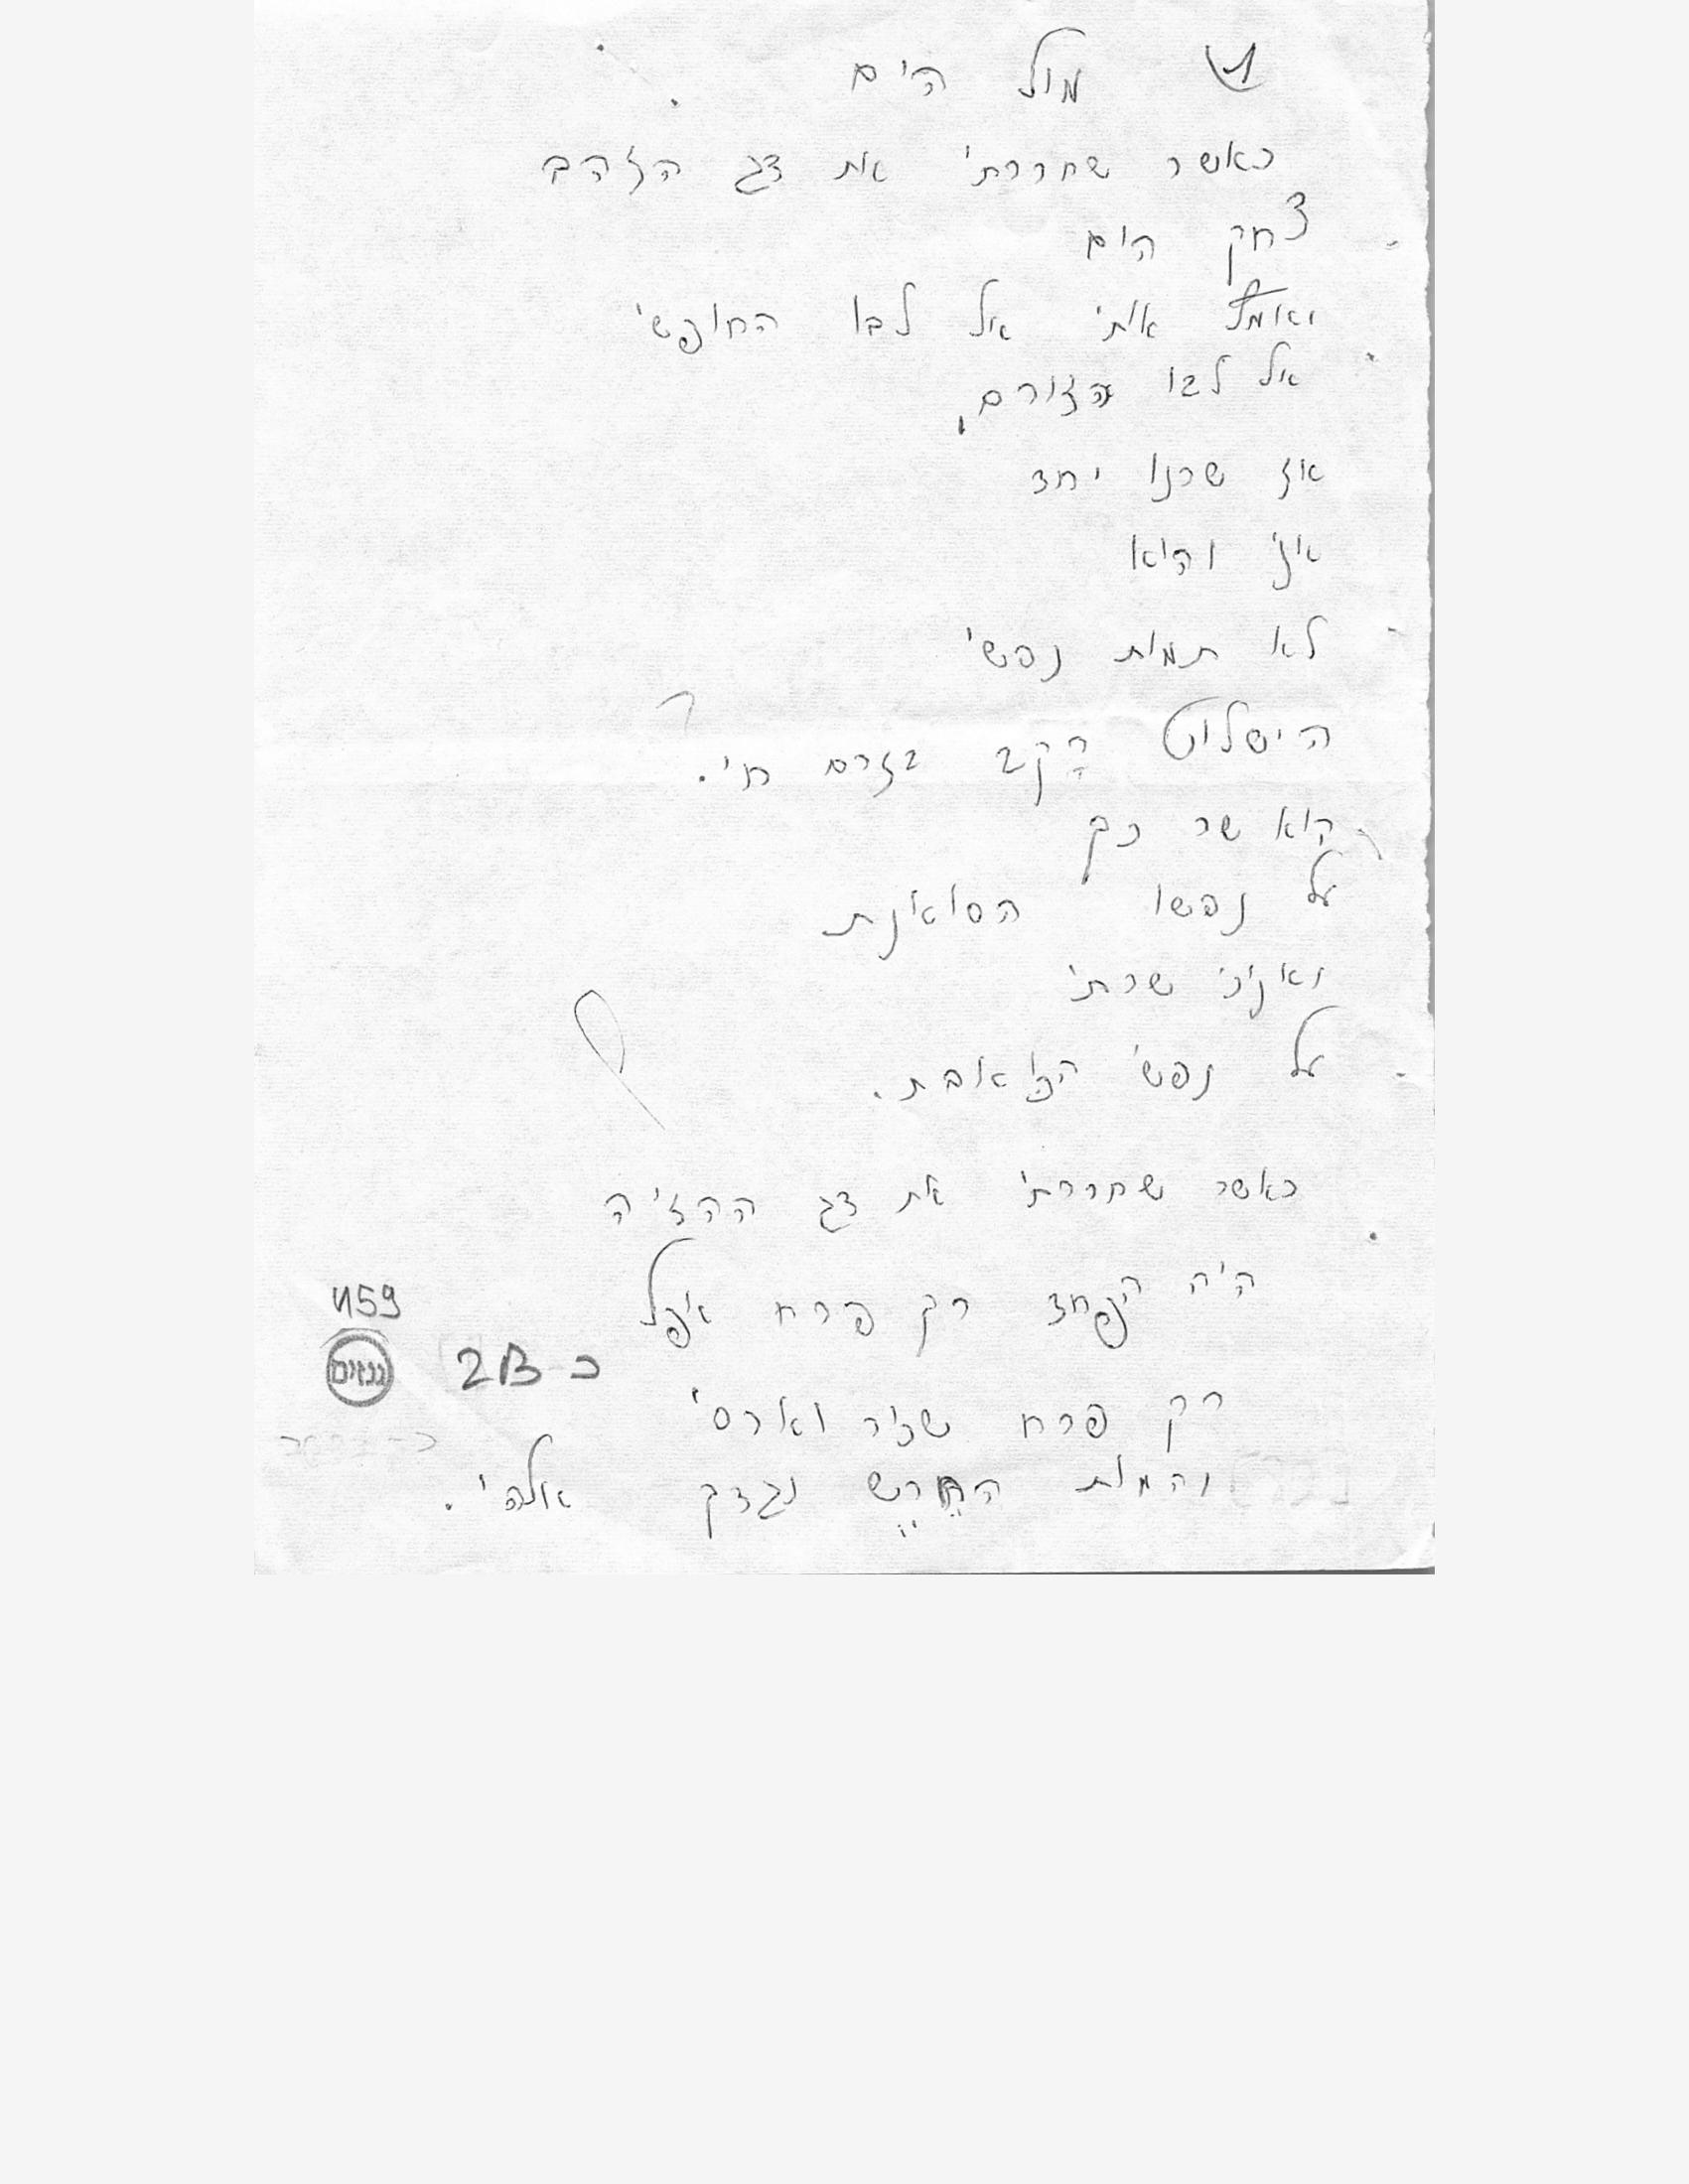 מול הים
כאשר שחררתי את דג הזהב
צחק הים
ואמץ אותי אל לבו החופשי
אל לבו הזורם,
אז שרנו יחד
אני והוא
לא תמות נפשי
הישלוט רָקָב בזרם חי.
הוא שר כך
על נפשו הסואנת
ואני שרתי
על נפשי הכואבת.
כאשר שחררתי את דג ההזיה
היה הנפחד רק פרח אפל
רק פרח שביר וארסי
והמות החֵרֵש נבדק אלהי.
4159
גנזים
כ 2B